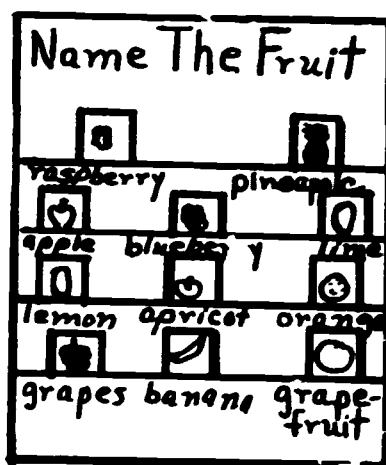 Name The Fruit
raspberry pineapple
apple blueberry lime
lemon apricot orange
grapes banana grape-
fruit